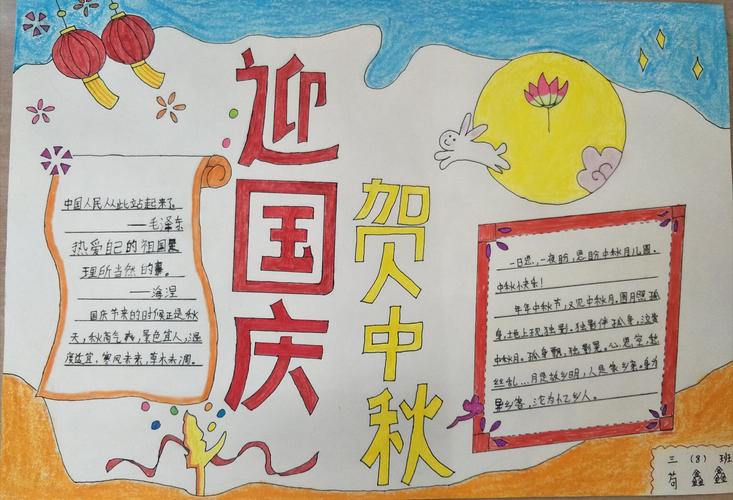 迎国庆
贺中秋
中国人民从此站起来了
——毛泽东
热爱自己的祖国是
理所当然的事。
——海涅
国庆节来的时候正是秋
天，秋高气爽，景色宜人，温
度益宜，寒风未来，草木未凋。
一日思，一夜盼，思盼中秋月儿圆。
中秋快乐！
年年中秋节，又见中秋月，圆月照孤
身，地上现独影。独影伴孤身，泣
中秋月。孤身飘，独影晃。心思定，愁
丝乱...月是故乡明，人是家乡亲。身为
异乡客，沦为忆乡人。
三（8）班
苟鑫鑫